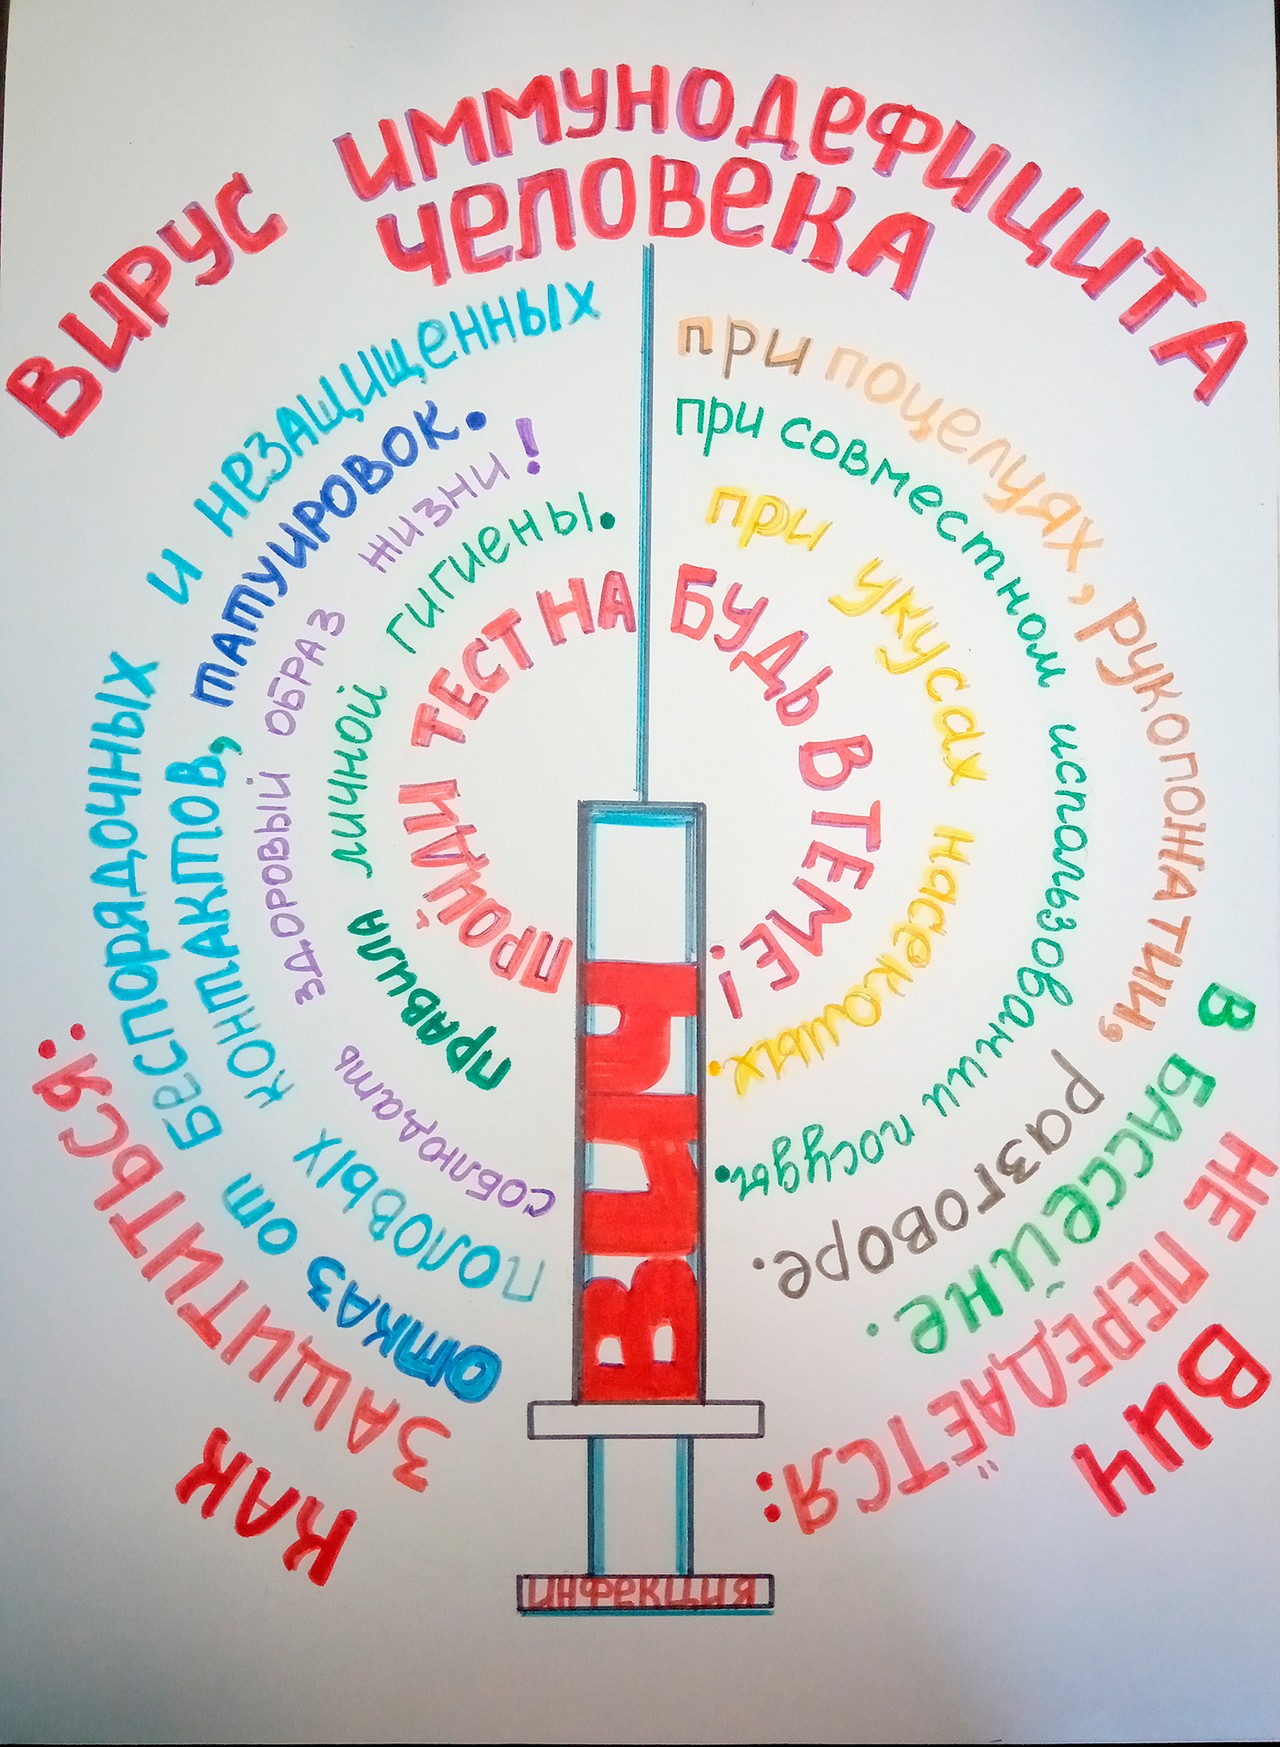 ВИРУС ИММУНОДЕФИЦИТА
ЧЕЛОВЕКА
КАК
ЗАЩИТИТЬСЯ:
ОТКАЗ ОТ БЕСПОРЯДОЧНЫХ И НЕЗАЩИЩЕННЫХ
ПОЛОВЫХ КОНТАКТОВ, ТАТУИРОВОК.
СОБЛЮДАТЬ ЗДОРОВЫЙ ОБРАЗ ЖИЗНИ!
ПРАВИЛА ЛИЧНОЙ ГИГИЕНЫ.
ПРОЙДИ ТЕСТ НА
ВИЧ
БУДЬ В ТЕМЕ!
ВИЧ
НЕ ПЕРЕДАЁТСЯ:
В БАССЕЙНЕ.
при поцелуях, рукопожатии, разговоре.
при совместном использовании посуды.
при укусах насекомых.
ИНФЕКЦИЯ